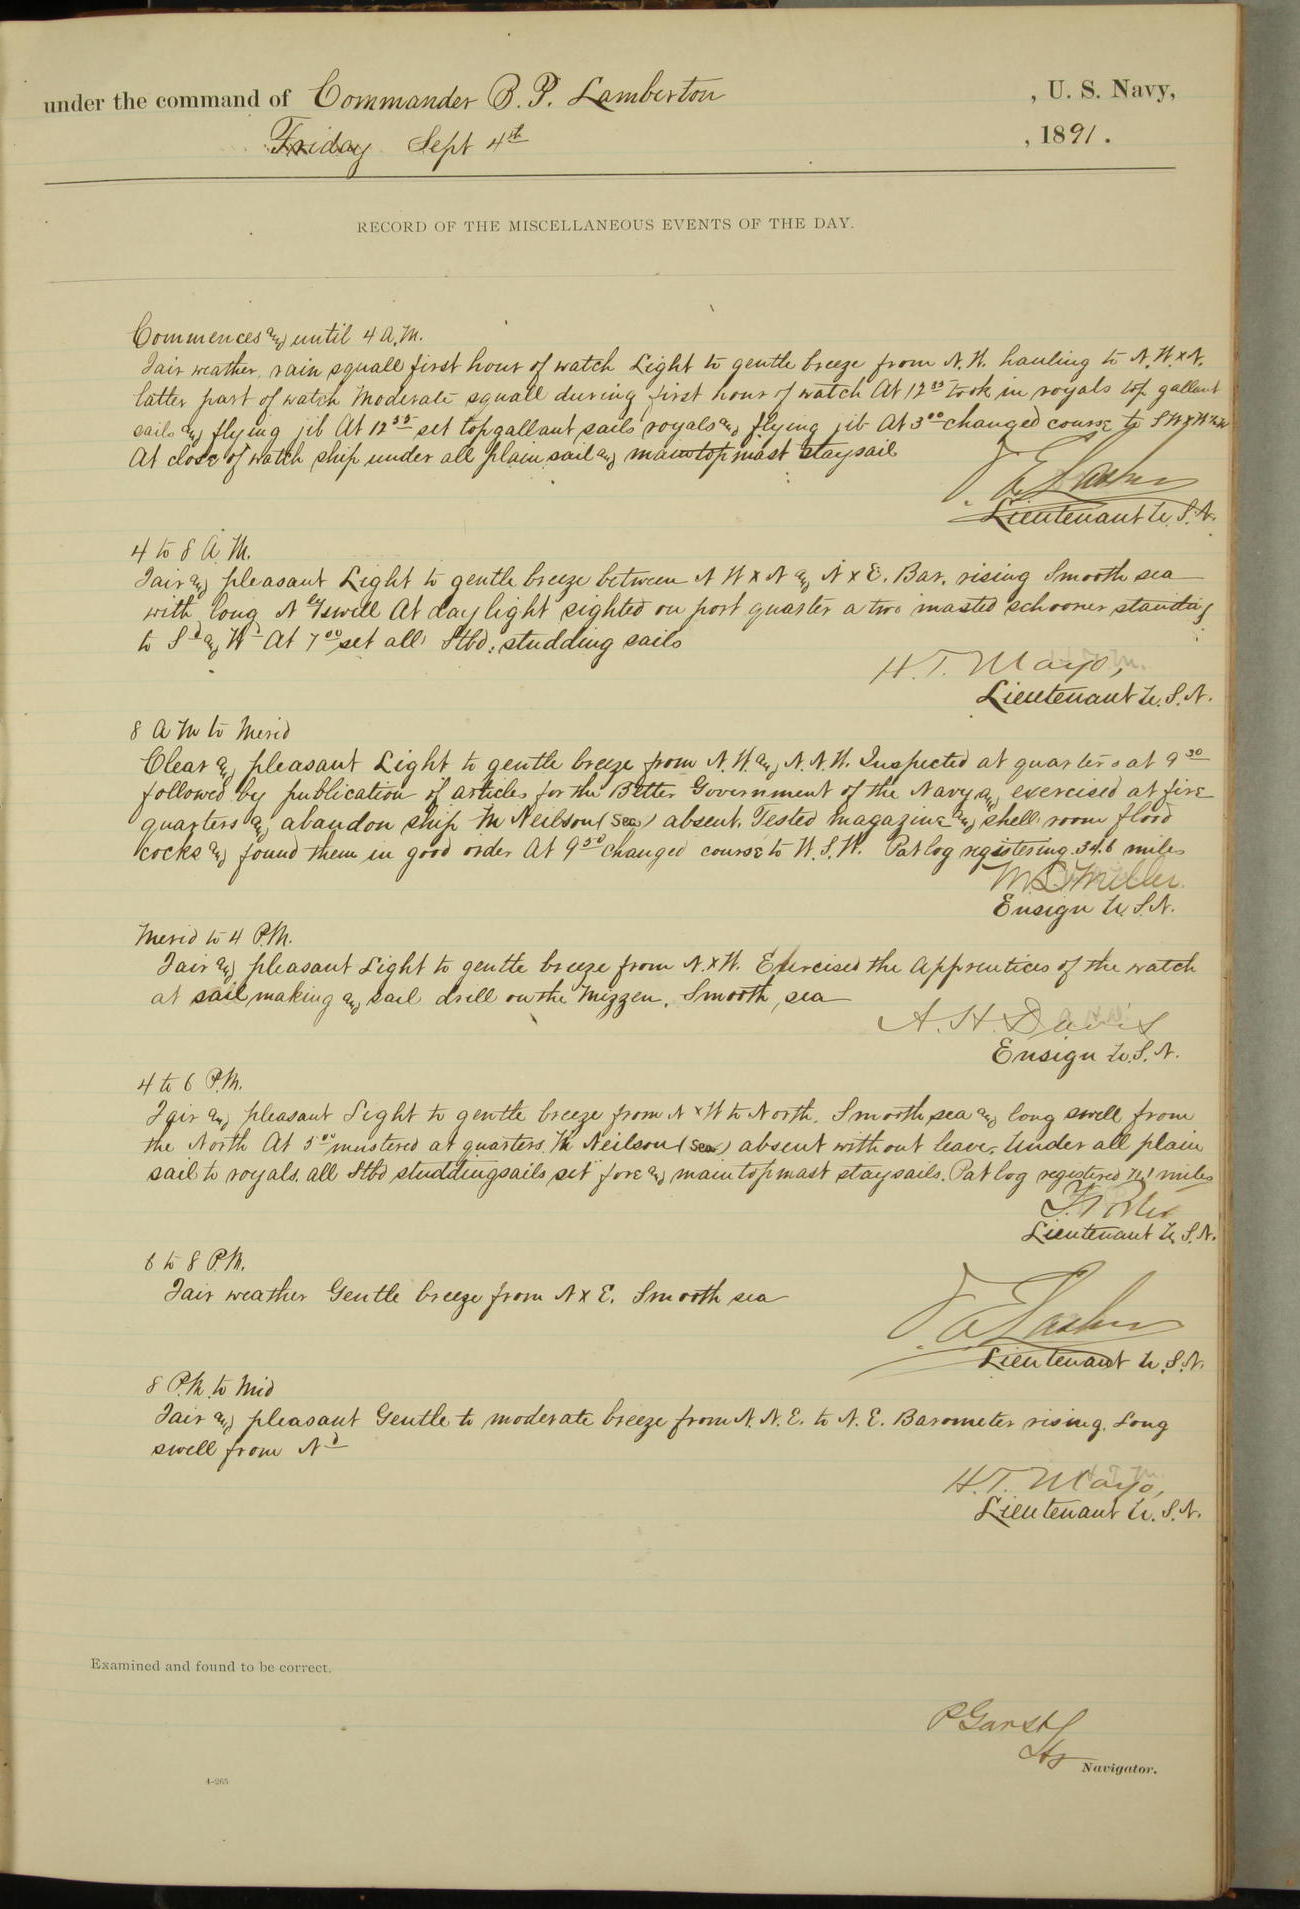 under the command of Commander B. P. Lamberton , U. S. Navy,
Friday Sept 4th , 1891.
RECORD OF THE MISCELLANEOUS EVENTS OF THE DAY.
Commences and until 4 A.M.
Fair weather, rain squall first hour of watch Light to gentle breeze from N.W. hauling to N.W x N.
latter part of watch Moderate squall during first hour of watch At 12 took in royals top gallant
sails and flying jib At 12 55 set topgallant sails royals and flying jib At 3 00 changed course to
At close of watch ship under all plain sail and maintopmast staysail
Lieutenant U.S.N.
4 to 8 A.M.
Fair and pleasant Light to gentle breeze between N W x N and N x E. Bar. rising Smooth sea
with long N'ly swell At daylight sighted on port quarter a two masted schooner standing
to Sd and Wd At 7 00 set all Stbd: studding sails
H.T. Mayo,
Lieutenant U.S.N.
8 A M to Merid
Clear and pleasant Light to gentle breeze from N.W. and N.N.W. Inspected at quarters at 9 30
followed by publication of articles for the Better Government of the Navy and exercised at fire
quarters and abandon ship M Neilson (Sea) absent. Tested magazine and shell room flood
cocks and found them in good order At 9 50 changed course to W.S.W. Pat log registering 34.6 miles
Miller
Ensign U.S.N.
Merid to 4 P.M.
Fair and pleasant Light to gentle breeze from N. x W. Exercised the Apprentices of the watch
at sail making and sail drill on the Mizzen. Smooth sea
A. H. Davis
Ensign U.S.N.
4 to 6 P.M.
Fair and pleasant Light to gentle breeze from N x W to North. Smooth sea and long swell from
the North At 5 00 mustered at quarters. M Neilson (Sea) absent without leave. Under all plain
sail to royals. all Stbd studdingsails set fore and maintopmast staysails. Pat log registered miles
Lieutenant U.S.N.
6 to 8 P.M.
Fair weather Gentle breeze from N x E. Smooth sea
Lieutenant U.S.N.
8 P.M. to Mid
Fair and pleasant Gentle to moderate breeze from N.N.E. to N.E. Barometer rising. Long
swell from Nd
H.T. Mayo,
Lieutenant U.S.N.
Examined and found to be correct.
P Garst
Navigator.
4-265